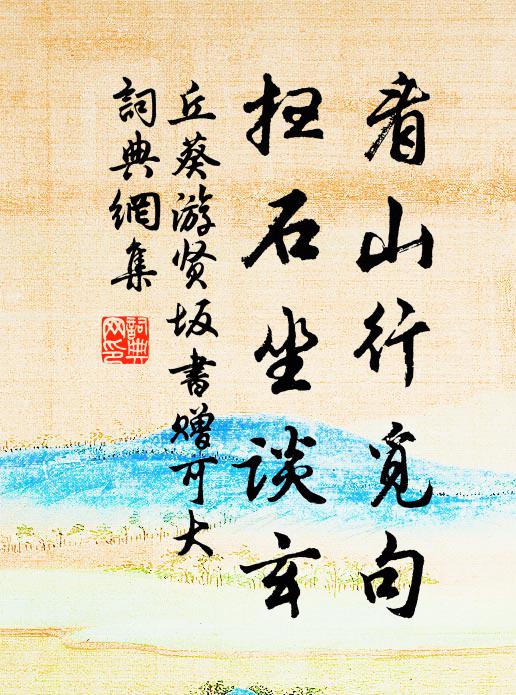 看山行觅句
扫石坐谈玄
丘葵游贤坂书赠可大
詞典網集
詞典
网印